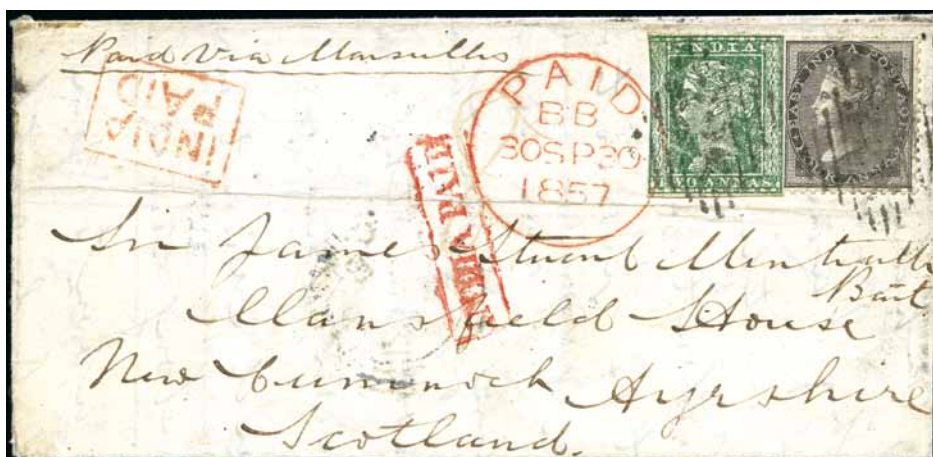 Paid Via Marseilles
INDIA
PAID
PAID
BB
30SP30
1857
INDIA
TWO ANNAS
EAST INDIA POSTAGE
Sir James Stuart Menteath
Bart
Mansfield House
New Cumnock Ayrshire
Scotland.